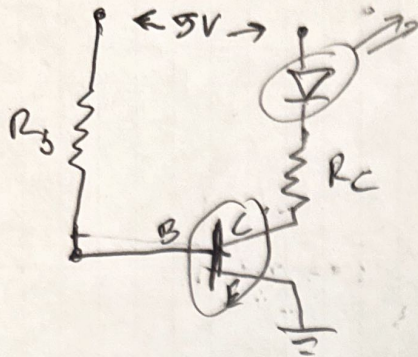 ← 5V →
RB
RC
B
C
E